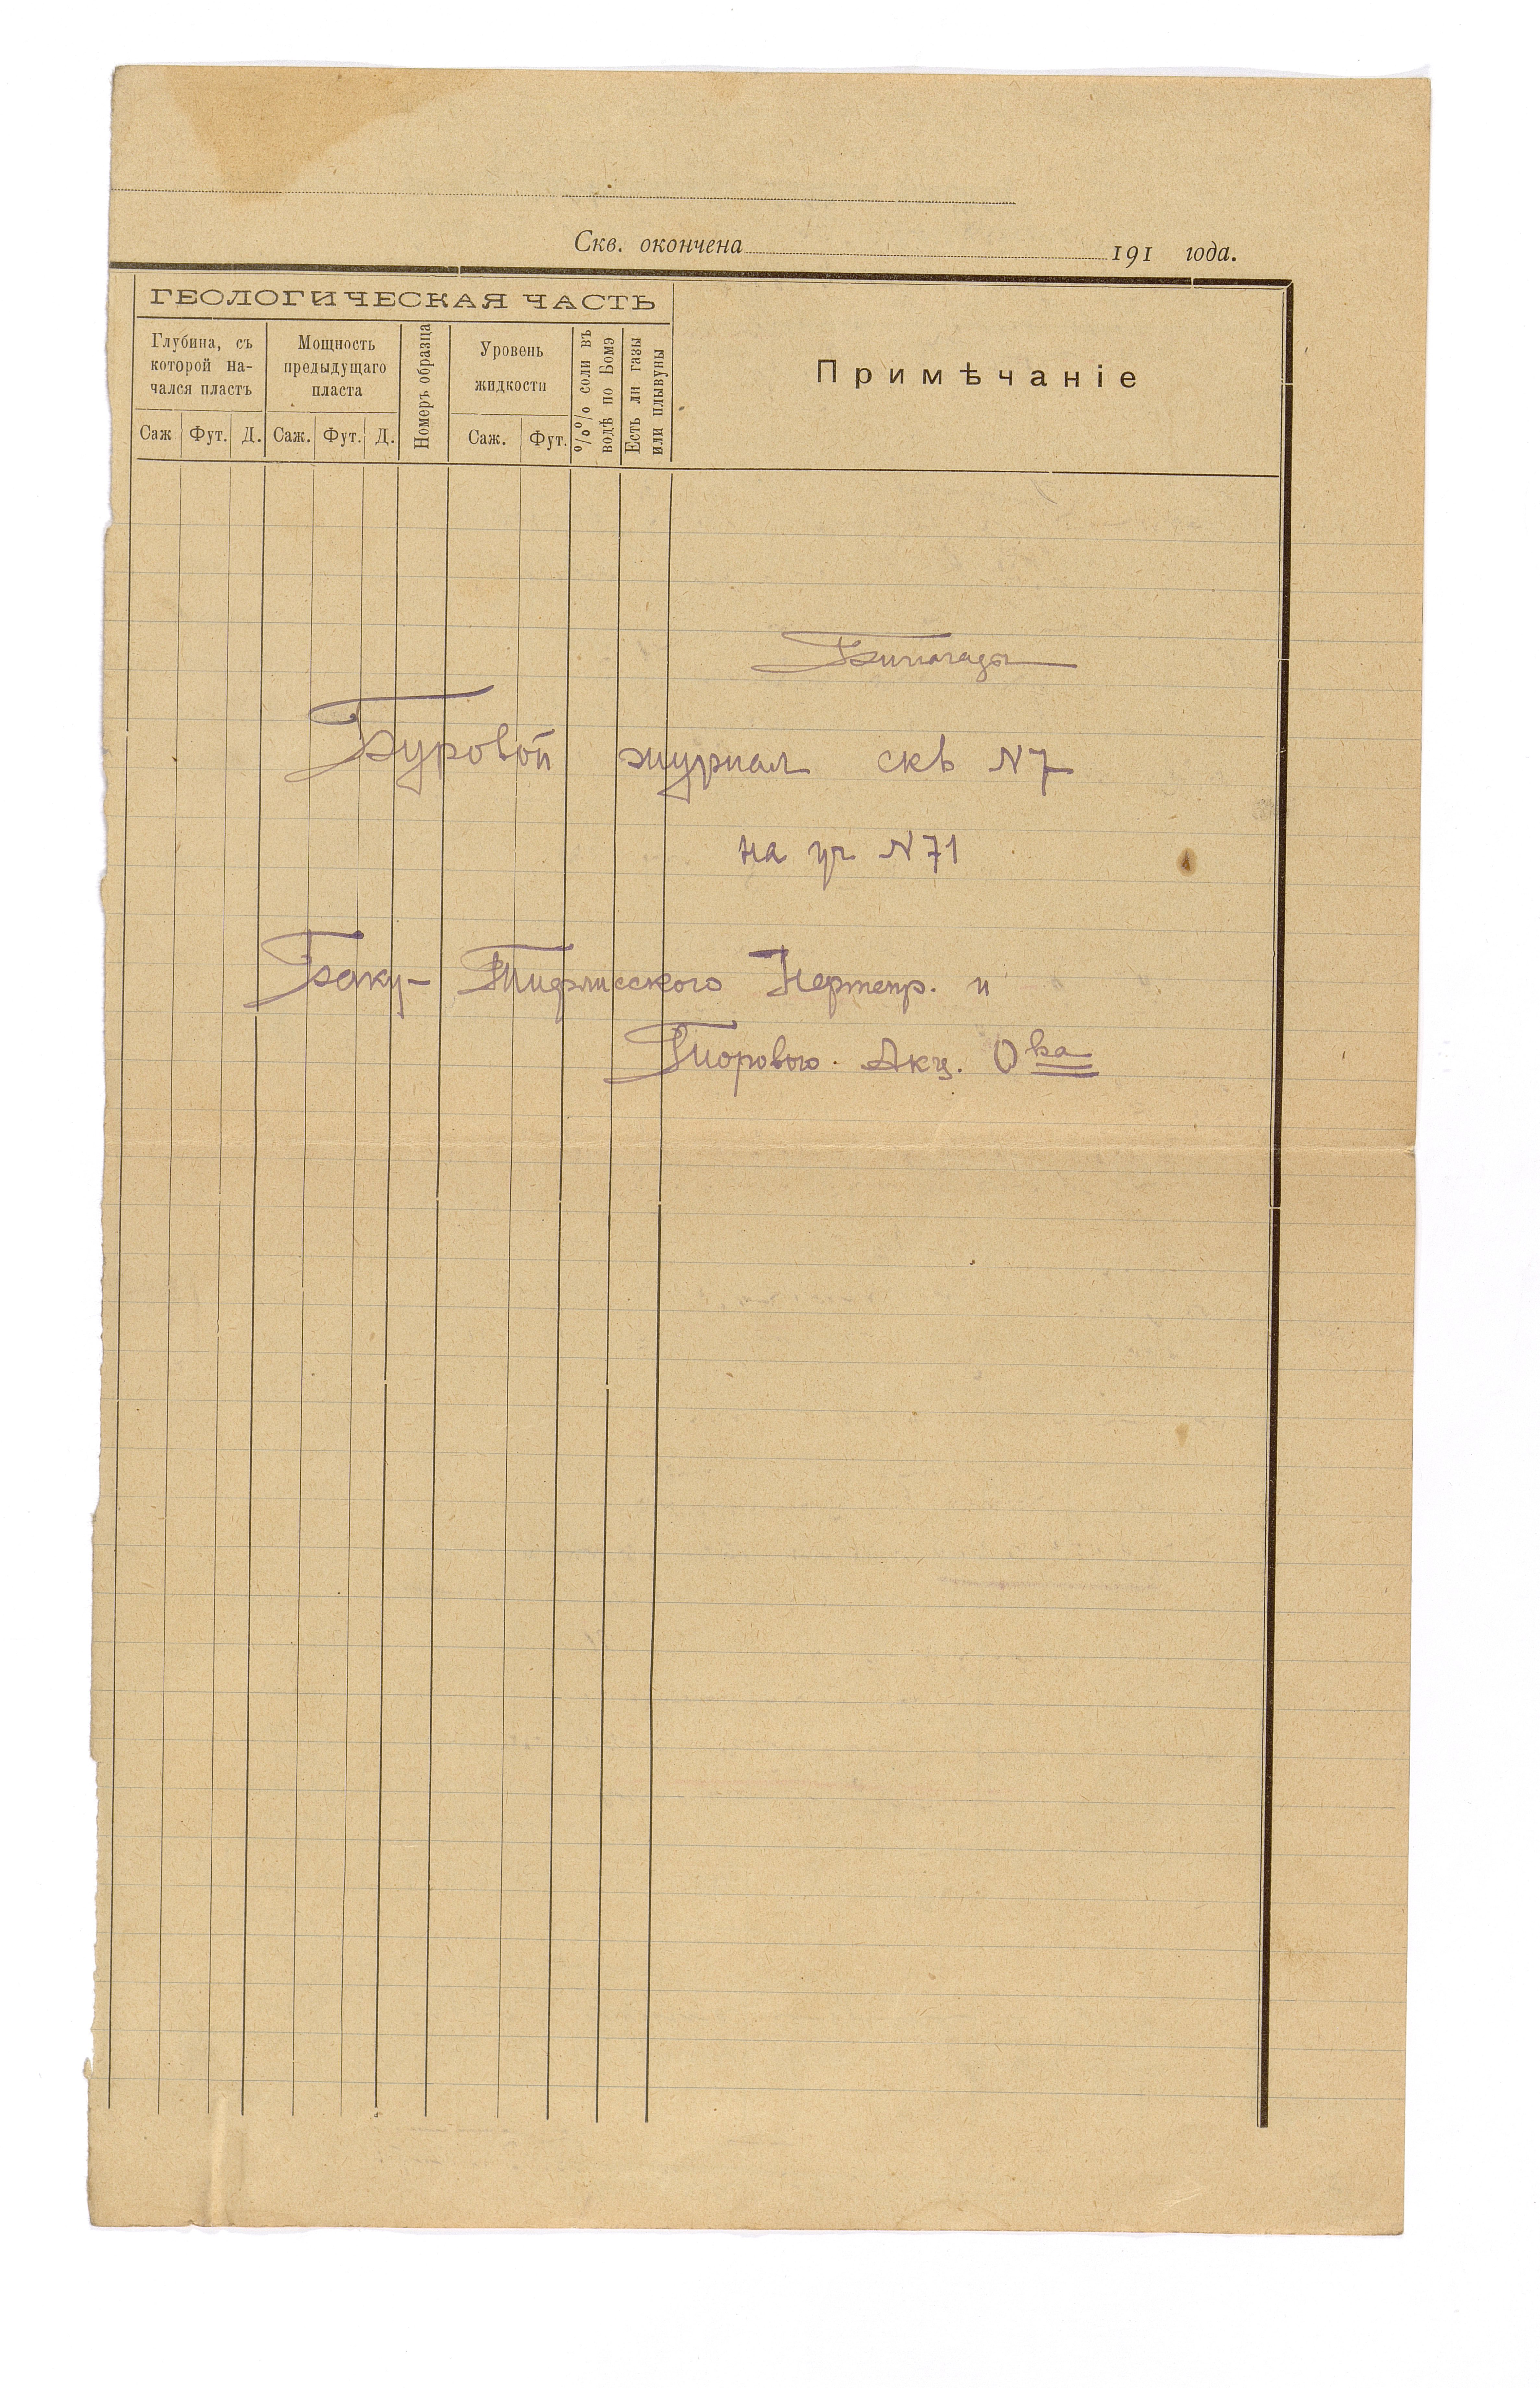 Скв. окончена 191 года.
ГЕОЛОГИЧЕСКАЯ ЧАСТЬ
Глубина, съ
которой на-
чался пластъ
Мощность
предыдущаго
пласта
Номеръ образца
Уровень
жидкости
%% соли въ
водѣ по Бомэ
Есть ли газы
или плывуны
Примѣчаніе
Саж Фут. Д. Саж. Фут. Д. Саж. Фут.
Бинагады
Буровой журнал скв N7
на уч N71
Баку- Тифлисского Нефтепр. и
Торгового. Акц. О ва